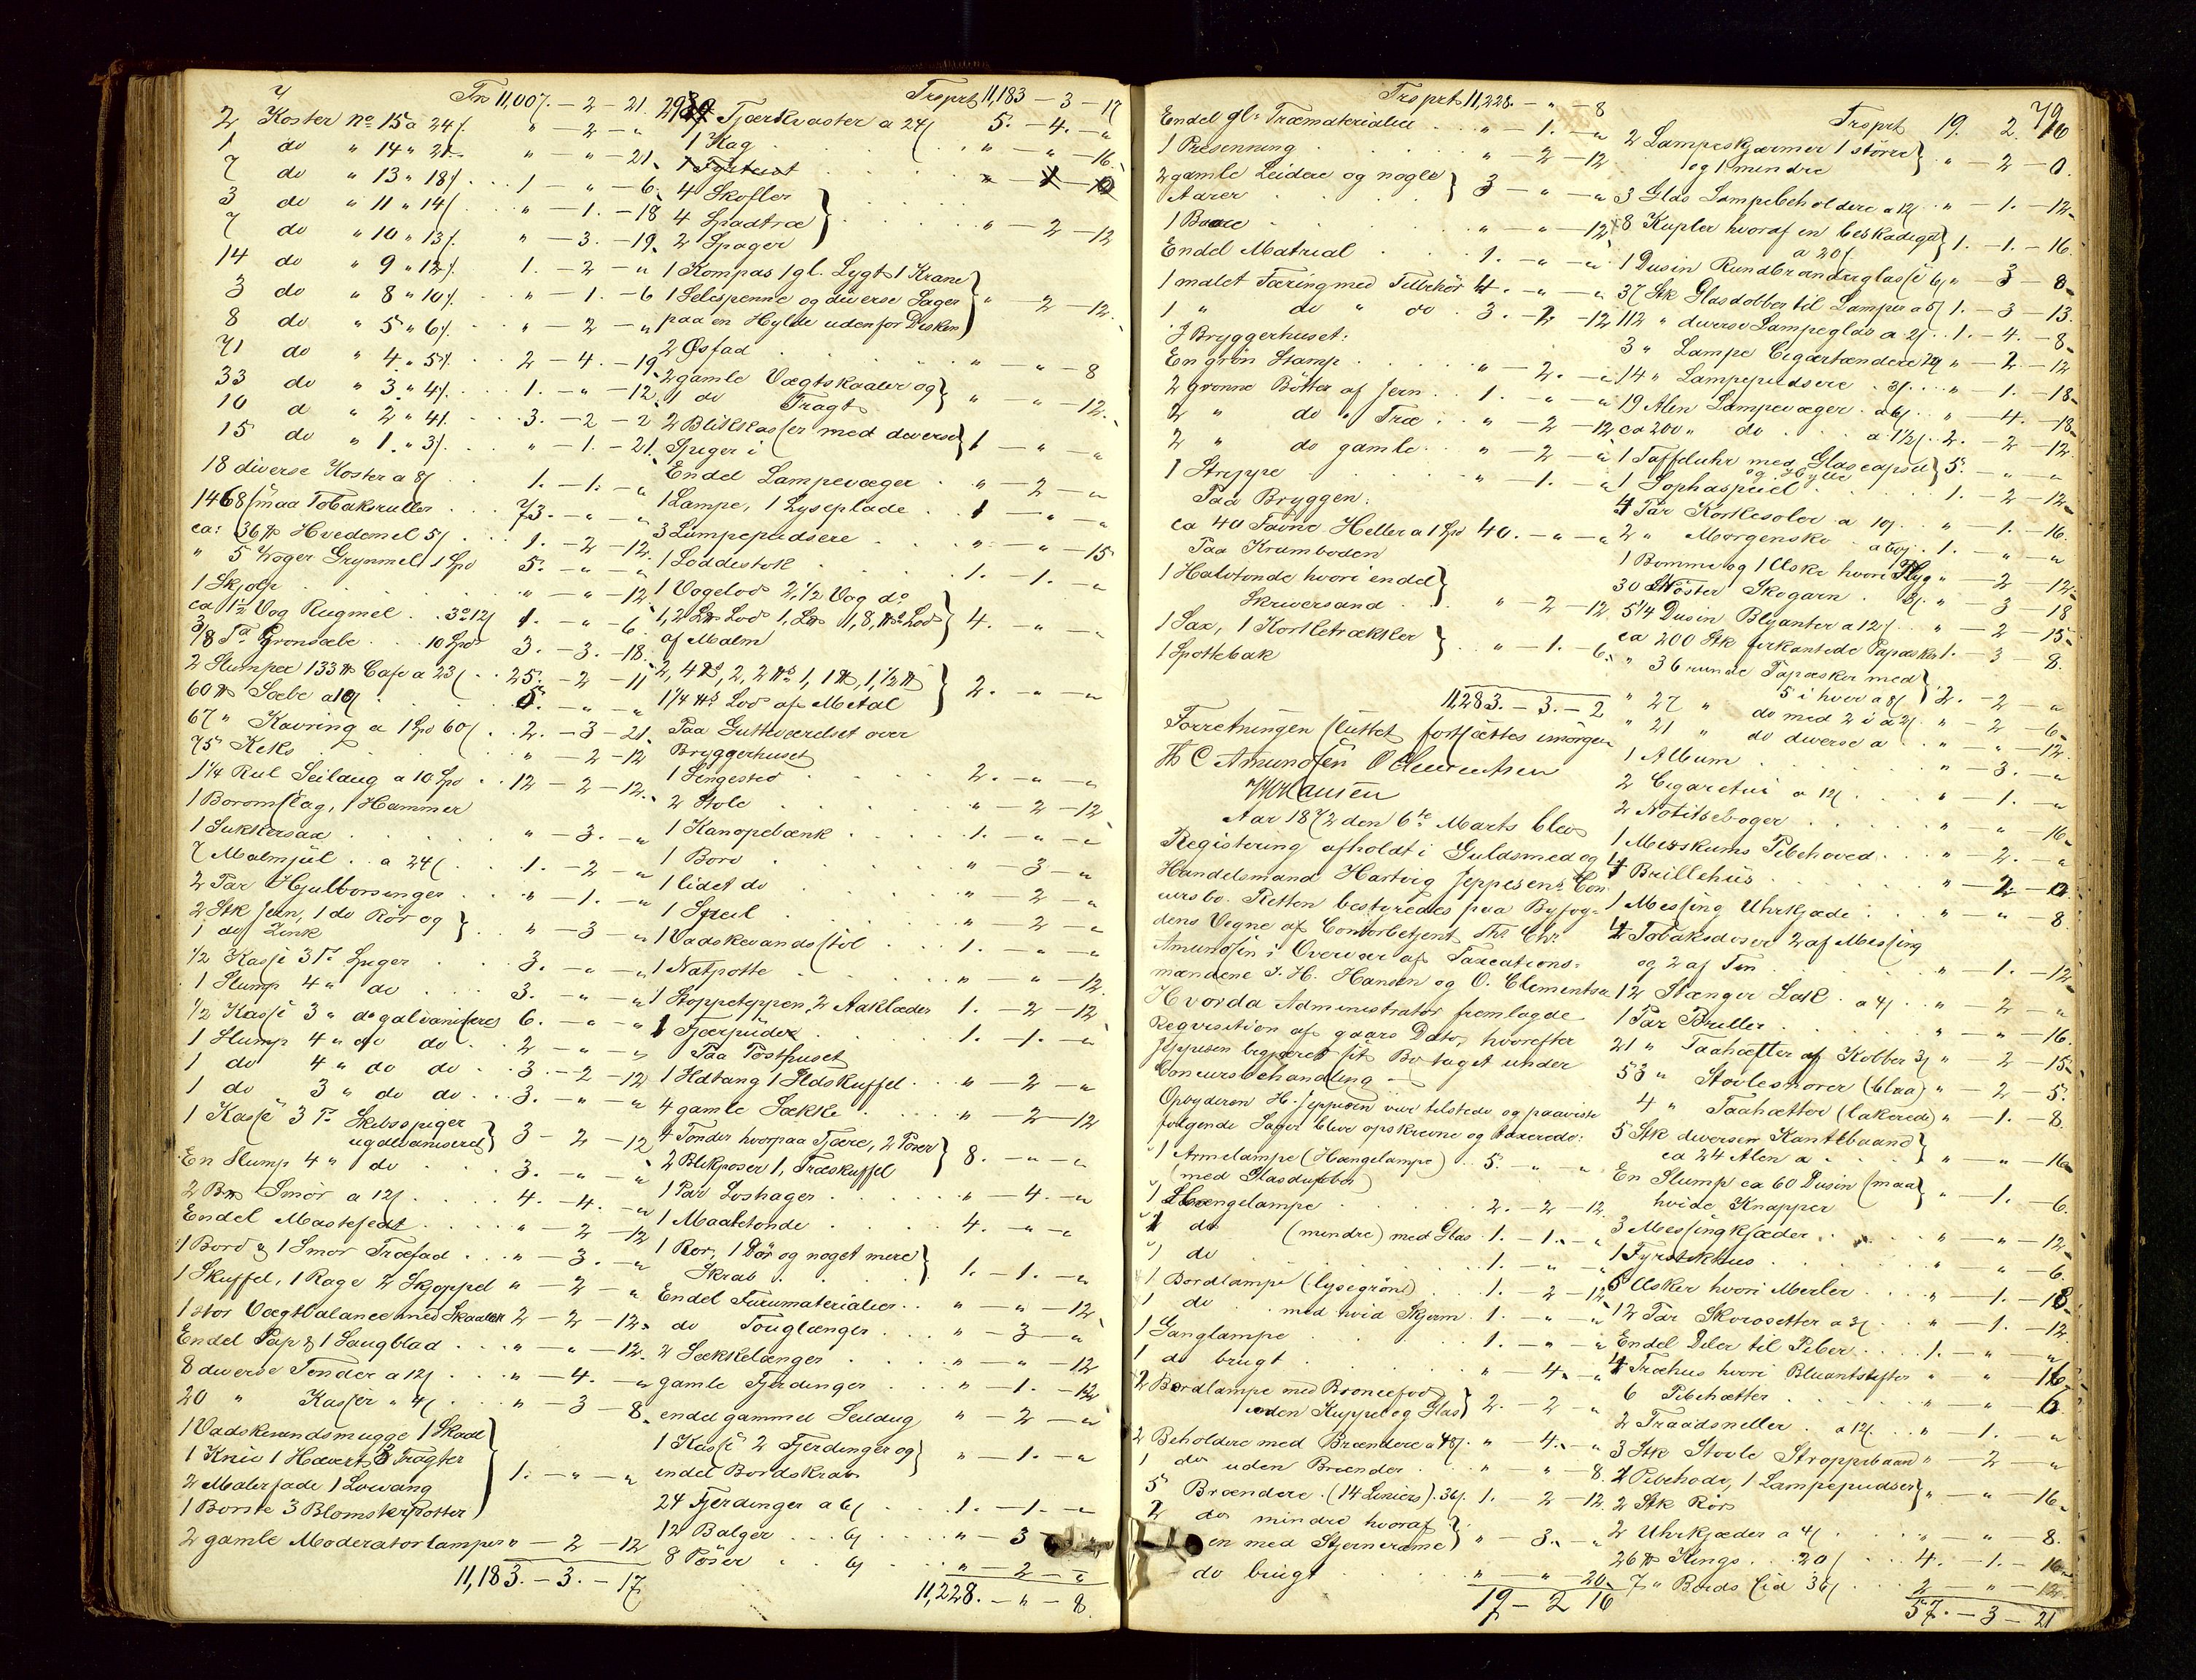 Trp 11,007. – 2 – 21.
2 Koster No 15 a 24 s. " – 2 – "
1 do " 14 " 21 " – " – 21.
7 do " 13 " 18 s. 1 – " – 6.
3 do " 11 " 14 s " – 1. – 18
7 do " 10 " 13 s. " – 3. – 19.
14 do " 9 " 12 s. 1. – 2 – "
3 do " 8 " 10 s. " – 1. – 6
8 do " 5 " 6 s. " – 2 – "
71 do " 4 " 5 s. 2 – 4. – 19
33 do " 3 " 4 s. 1. – " – 12
10 d " 2 " 4 s. 3. – 2 – 2
15 do " 1. " 3 s. " – 1. – 21.
18 diverse Koster a 8 s 1. – 1. – "
1468 smaa Tobaksruller 73. – " – "
ca: 36 ℔ Hvedemel 5 s 1. – 2 – 12.
" 5 Voger Grynmel 1 Spd 5. – " – "
1 Skjolp " – " – 12.
ca 1½ Vog Rugmel 3 o 12 s 1. – " – 6.
3/8 Td Grønsæbe 10 Spd 3. – 3. – 18.
2 Slumper 133 ℔ Cafe a 23 s 25. – 2 – 11
60 ℔ Sæbe a 10 s 5. – " – "
67 " Kavring a 1 Spd 60 s 2. – 3 – 21.
75 Keks " – 2 – 12
1¼ Rul Seildug a 10 Spd 12 – 2 – 12.
1 Boromslag, 1 Hammer
1 Sukkersax " – 3. – "
7 Malmjul a 24 s 1. – 2 – "
2 Par Hjulbørsinger " – 1. – "
2 Stk Jern, 1 do Rör og
1 do Zink " – 3 – "
½ Kasse 3 T Spiger 3. – " – "
1 Slump 4 " do 3. – " – "
½ Kasse 3 " do galvaniseres 6. – " – "
1 Slump 4 " do do 2 – " – "
1 do 4 " do do 3. – 2 – 12
1 do 3 " do do 3. – " – "
1 Kasse 3 T Skibsspiger
ugalvaniseret 3 – 2 – 12
En Slump 4 " do 3. – " – "
2 B℔ Smör a 12 s 4. – 4. – "
Endel Mastefedt " – 2 – 12
1 Bord & 1 Smør Træfad " – 3. – "
1 Skuffel, 1 Rage 2 Skjøppel " – 2 – "
1 stor Vægtbalance med Skaaler 2 – 2 – 12.
Endel Pap & 1 Saugblad " – " – 12.
8 diverse Tønder a 12 s " – 4. – "
20 " Kasser " 4 s " – 3 – 8.
1 Vadskevandsmugge 1 Skaal
1 Kniv 1 Hævert 3 Tragter
2 Malerfade 1 Lovang
1 Børste 3 Blomsterpotter 1. – " – "
2 gamle Moderatorlamper " – 2 – 12
11,183. – 3. – 17
Trsprt 11,183 – 3 – 17
29 Tjærekvaster a 24 s 5. – 4. – "
1 Kag " – " – 16.
4 Skofler
4 Spadtræ
2 Spager " – 2 – 12
1 Kompas 1 gl. Lygt 1 Krane
1 Selespenne og diverse Sager
paa en Hylde udenfor Disken " – 2 – 12.
2 Øsfad " – " – 8
2 gamle Vægtskaaler og
1 do Tragt " – " – 12.
2 Blikkasser med diverse
Spiger i 1 – " – "
Endel Lampevæger " – 2 – "
1 Lampe, 1 Lyseplade 1 – " – "
3 Lampepudsere " – " – 15
1 Loddestok 1. – 1. – "
1 Vogelod 2½ Vog do
1, 2 L℔ Lod 1, L℔ 11, 8, ℔ Lod
af Malm 4. – " – "
2, 4 ℔, 2, 2 ℔ 1, 1 ℔, 1, ½ ℔
1¼ ℔ Lod af Metal 2. – " – "
Paa Gutteværelset over
Bryggerhuset
1 Sengested 2. – " – "
2 Stole " – 2 – 12.
1 Kanapebænk 1. – " – "
1 Bord " – 3 – "
1 lidet do " – 2 – "
1 Speil " – 2 – "
1 Vadskevandsstol 1. – " – "
1 Natpotte " – " – 12.
1 Stoppeteppen, 2 Aaklæder 1. – 2 – 12
1 Fjærpude 1. – 1. – "
Paa Posthuset
1 Ildtang 1 Ildskuffel " – 2 – "
4 gamle Sække " – 2 – 12
4 Tønder hvorpaa Tjære, 2 Pøser
2 Blikposer 1, Træskuffel 8. – " – "
1 Par Loshager " – 4. – "
1 Maaletønde 4. – " – "
1 Ror, 1 Dör og noget mere
Skrab 1. – 1. – "
Endel Furumaterialier " – " – 12
do Touglænger " – 3 – "
2 Sækkelænger " – " – 12
gamle Fjerdinger " – 1. – 12
endel gammel Seildug " – 2 – "
1 Kasse 2 Fjerdinger og
endel Bordskrab " – 1. – "
24 Fjerdinger a 6 s 1. – 1. – "
12 Balger 6 s " – 3
8 Pöser " 6 s " – 2 – "
11,228. – " – 8.
Trsprt 11,228. – " – 8
Endel gl. Træmaterialier " – 1. – "
1 Presenning " – 2 – 12
2 gamle Leidere og nogle
Aarer 3 – " – "
1 Baare " – " – 12
Endel Matrial 1. – " – "
1 malet Færing med Tilbehör 4. – " – "
1 " do " do 3. – 2 – 12
I Bryggerhuset:
En grön Stamp " – 2. – "
2 grønne Bötter af Jern 1. – " – "
2 " do " Træ " – 2 – 12
2 " do gamle " – 2 – "
1 Strippe " – 1. – "
Paa Bryggen:
ca 40 Favne Heller a 1 Spd 40. – " – "
Paa Kramboden
1 Halvtønde hvori endel
Skriversand " – 2 – 12.
1 Sax, 1 Korketrækker
1 Spottebak " – 1. – 6.
11,283. – 3. – 2
Forretningen sluttet fortsættes imorgen
Th C Amundsen O Clementsen
J H Hansen
Aar 1872 den 6te Marts blev
Registering afholdt i Guldsmed og
Handelsmand Hartvig Jeppesens Con
cursbo. Retten bestyredes paa Byfog-
dens Vegne af Contorbetjent Th. Chr.
Amundsen i Overvær af Taxations-
mændene J. H. Hansen og O. Clementsen
Hvorda Administrator fremlagde
Reqvisition af gaars Dato, hvorefter
Jeppesen begjærer sit Bo taget under
Concursbehandling –
Opbyderen H. Jeppesen var tilstede og paaviste
følgende Sager blev opskrevne og taxerede:
1 Armelampe (Hængelampe) 5. – " – "
(med Glasduppber)
1 Hængelampe 2. – 2 – 12.
1 do (mindre) med Glas 1. – 1. – "
1 do 1. – " – "
1 Bordlampe (lysegrøn) 1. – 2 – 12
1 do med hvid Skjerm 1. – " – "
1 Ganglampe 1. – " – "
1 do brugt " – 4. – "
2 Bordlampe med Broncefod
1 uden Kuppel og Glas 2. – 2 – "
2 Beholdere med Brændere a 48 s. " – 4. – "
1 do uden Brænder " – " – 8.
5 Brændere (14 Liniers) 36 s. 1. – 2 – 12.
2 do mindre hvoraf
en med Stjerneramme " – 3. – "
do brugt " – " – 20.
19 – 2 16
79
Trsprt 19. 2. 16
2 Lampeskjærmer 1 større
og 1 mindre " – 2 – 0.
3 Glas Lampebeholdere a 12 s " – 1. – 12.
8 Kupler hvoraf en beskadiget
a 20 s 1. – 1. – 16.
1 Dusin Rundbrænderglasse 6 s " – 3 – 8.
37 Stk Glasdobber til Lamper a 5 s 1. – 3 – 13.
112 " diverse Lampeglas a 2 s. 1. – 4. – 8.
3 " Lampe Cigartændere 24 " – 2 – 12
14 " Lampepudsere 3 s. " – 1. – 18.
19 Alen Lampevæger a 6 s. " – 4. – 18.
ca 200 " do a 1½ s. 2. – 2 – 12.
1 Taffeluhr med Glascapsel
og Hylle 5. – " – "
1 Sophaspeil 1. – 2 – 12.
4 Par Korkesoler a 10 s. " – 1. – 16.
2 " Morgensko a 60 s. 1. – " – "
1 Bomme og 1 Æske hvori Flyg " – 2 – 12.
30 Nöster Skogarn 3 s. " – 3 – 18
5¼ Dusin Blyanter a 12 s. " – 2 – 15.
ca 200 Stk firkantede Papæsker 1. – 3 – 8.
" 36 runde Papæsker med
5 i hver a 8 s 2. – 2 – "
" 27 " do med 2 i a 2 s. " – 2 – 6.
" 21 " do diverse a " – " – 12.
1 Album " – 3. – "
2 Cigaretui a 12 s " – 1. – "
2 Notitsebøger " – " – 16.
1 Merskums Pibehoved " – 2. – "
4 Brillehus " – 2 – 0.
1 Messing Uhrkjæde " – " – 8.
4 Tobaksdoser 2 af Messing
og 2 af Tin " – 1. – 12.
12 Stænger Lak a 4 s " – 2 – "
1 Par Briller " – " – 16.
21 " Taahætter af Kobber 3 s " – 2 – 15.
53 " Støvlesnører (blaa) " – 2 – 5.
4 " Taahætter (lakerede) " – 1. – 8.
5 Stk diverser Kantebaand
ca 24 Alen a " – " – 16.
En Slump ca 60 Dusin smaa
hvide Knapper " – 1. – 6.
3 Messingkjæder " – " – 12.
1 Fyrstikhus " – " – 6.
5 Æsker hvori Merler " – 1. – 18.
12 Par Skorosetter a 3 s " – 1. – 12.
Endel Deler til Piber 1. – " – "
4 Træhus hvori Bluantstifter " – " – 16.
6 Pibehætter " – " – 6.
2 Traadsneller a 12 s " – 1. – "
3 Stk Støvle Stroppebaand " – 2 – "
2 Pibehode, 1 Lampepudser
2 Stk Rör " – " – 16.
2 Uhrkjæder a 4 s " – " – 8.
26 ℔ Kings 20 s 4. – 1. – 16.
7 " Bords Sid 36 s 2 – " – 12.
57. – 3 – 21